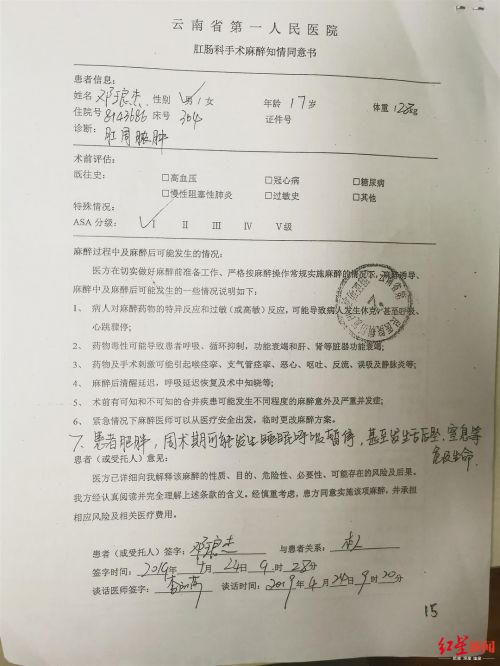 云南省第一人民医院
肛肠科手术麻醉知情同意书
患者信息:
姓名 邓琅杰 性别 男 1 女 年龄 17 岁 体重 128kg
住院号 8143686 床号 364 证件号
诊断: 肛周脓肿
术前评估:
既往史: □高血压 □冠心病 □糖尿病
□慢性阻塞性肺炎 □过敏史 □其他
特殊情况:
ASA 分级: I II III IV V级
麻醉过程中及麻醉后可能发生的情况:
医方在切实做好麻醉前准备工作、严格按麻醉操作常规实施麻醉的情况下,麻醉诱导、
麻醉中及麻醉后可能发生的一些情况说明如下:
1、 病人对麻醉药物的特异反应和过敏(或高敏)反应,可能导致病人发生休克,甚至呼吸、
心跳骤停;
2、 药物毒性可能导致患者呼吸、循环抑制,功能衰竭和肝、肾等脏器功能衰竭;
3、 药物及手术刺激可能引起喉痉挛、支气管痉挛、恶心、呕吐、反流、误吸及静脉炎等;
4、 麻醉后清醒延迟,呼吸延迟恢复及术中知晓等;
5、 术前有可知和不可知的合并疾患可能发生不同程度的麻醉意外及严重并发症;
6、 紧急情况下麻醉医师可以从医疗安全出发,临时更改麻醉方案。
7. 患者肥胖,围术期可能发生睡眠呼吸暂停,甚至发生舌后坠,窒息等
危及生命.
患者(或受托人)意见:
医方已详细向我解释该麻醉的性质、目的、危险性、必要性、可能存在的风险及后果。
我方经认真阅读并完全理解上述条款的含义。经慎重考虑,患方同意实施该项麻醉,并承担
相应风险及相关医疗费用。
患者(或受托人)签字: 邓琅杰 与患者关系: 本人
签字时间: 2019年 4月 24日 9 时 28分
谈话医师签字: 谈话时间: 2019年 4月 24日 9时 20分
15
红星新闻